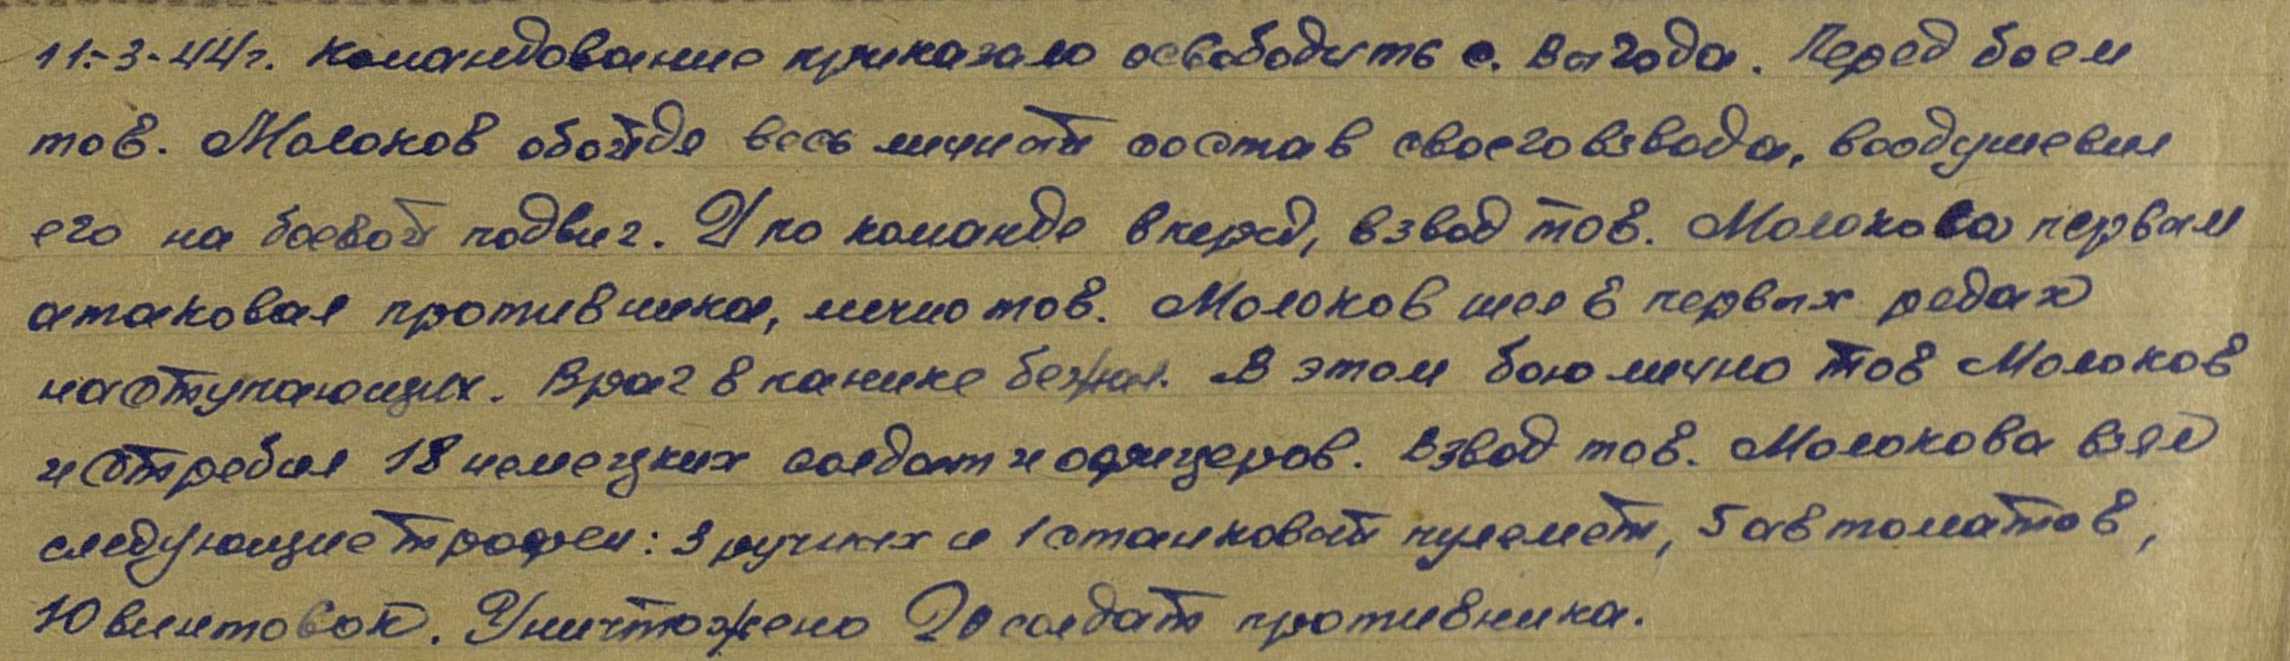 11-3-44г. командование приказало освободить с. Выгода. Перед боем
тов. Молоков обойдя весь личный состав своего взвода, воодушевил
его на боевой подвиг. И по команде вперед, взвод тов. Молокова первым
атаковал противника, лично тов. Молоков шел в первых редах
наступающих. Враг в панике бежал. В этом бою лично тов Молоков
истребил 18 немецких солдат и офицеров. Взвод тов. Молокова взял
следующие трофеи: 3 ручных и 1 станковый пулемет, 5 автоматов,
10 винтовок. Уничтожено 20 солдат противника.